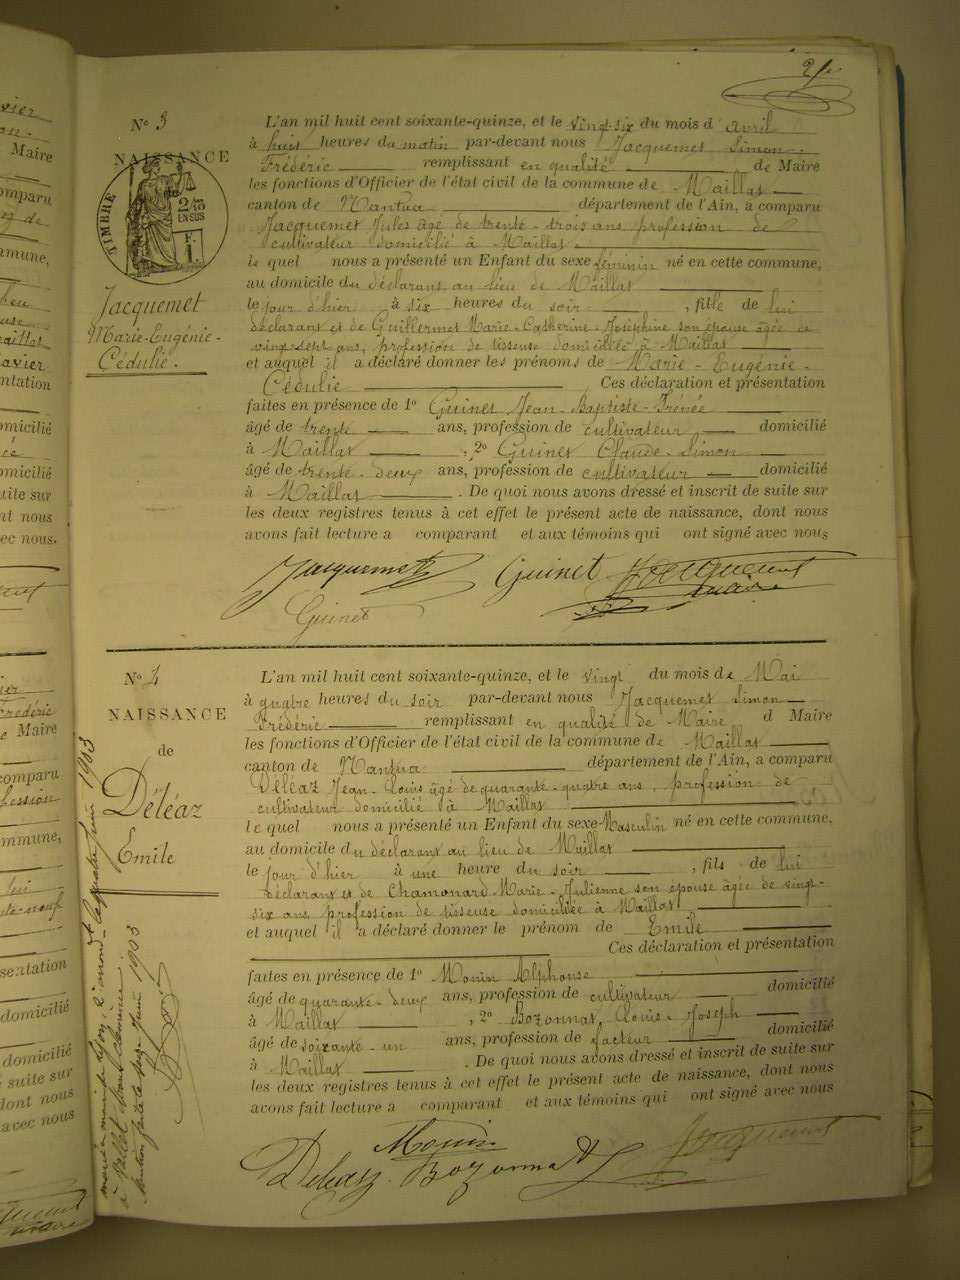 N° 3
NAISSANCE
TIMBRE
2 1/5
EN SUS
Jacquemet
Marie-Eugénie-
Cédulie.
L'an mil huit cent soixante-quinze, et le vingt-six du mois d'avril
à huit heures du matin par-devant nous Jacquemet Simon-
Frédéric remplissant en qualité de Maire
les fonctions d'Officier de l'état civil de la commune de Maillat
canton de Nantua département de l'Ain, a comparu
Jacquemet Jules âgé de trente-trois ans profession de
cultivateur domicilié à Maillat
le quel nous a présenté un Enfant du sexe féminin né en cette commune,
au domicile du déclarant au lieu de Maillat
le jour d'hier à six heures du soir, fille de lui
déclarant et de Guillermet Marie-Catherine-Joséphine son épouse âgée de
vingt sept ans, profession de tisseuse domiciliée à Maillat
et auquel il a déclaré donner les prénoms de Marie-Eugénie-
Cédulie Ces déclaration et présentation
faites en présence de 1° Guinet Jean-Baptiste-Irénée
âgé de trente ans, profession de cultivateur domicilié
à Maillat, 2° Guinet Claude-Simon
âgé de trente-deux ans, profession de cultivateur domicilié
à Maillat. De quoi nous avons dressé et inscrit de suite sur
les deux registres tenus à cet effet le présent acte de naissance, dont nous
avons fait lecture a comparant et aux témoins qui ont signé avec nous
Jacquemet Guinet Jacquemet
maire
Guinet
N° 4
NAISSANCE
de
Déléaz
Emile
L'an mil huit cent soixante-quinze, et le vingt du mois de Mai
à quatre heures du soir par-devant nous Jacquemet Simon-
Frédéric remplissant en qualité de Maire d Maire
les fonctions d'Officier de l'état civil de la commune de Maillat
canton de Nantua département de l'Ain, a comparu
Déléaz Jean-Louis âgé de quarante-quatre ans, profession de
cultivateur domicilié à Maillat
le quel nous a présenté un Enfant du sexe Masculin né en cette commune,
au domicile du déclarant au lieu de Maillat
le jour d'hier à une heure du soir, fils de lui
déclarant et de Chamonard Marie-Julienne son épouse âgée de vingt-
six ans profession de tisseuse domiciliée à Maillat
et auquel il a déclaré donner le prénom de Emile
Ces déclaration et présentation
faites en présence de 1° Monin Alphonse
âgé de quarante-deux ans, profession de cultivateur domicilié
à Maillat, 2° Bozonnat, Louis-Joseph
âgé de soixante-un ans, profession de facteur domicilié
à Maillat. De quoi nous avons dressé et inscrit de suite sur
les deux registres tenus à cet effet le présent acte de naissance, dont nous
avons fait lecture a comparant et aux témoins qui ont signé avec nous
Monin
Deleaz Bozonnat Jacquemet
marié à mairie Lyon, 2e arrond. le quatre Juin 1903
Mention faite le Juin 1903